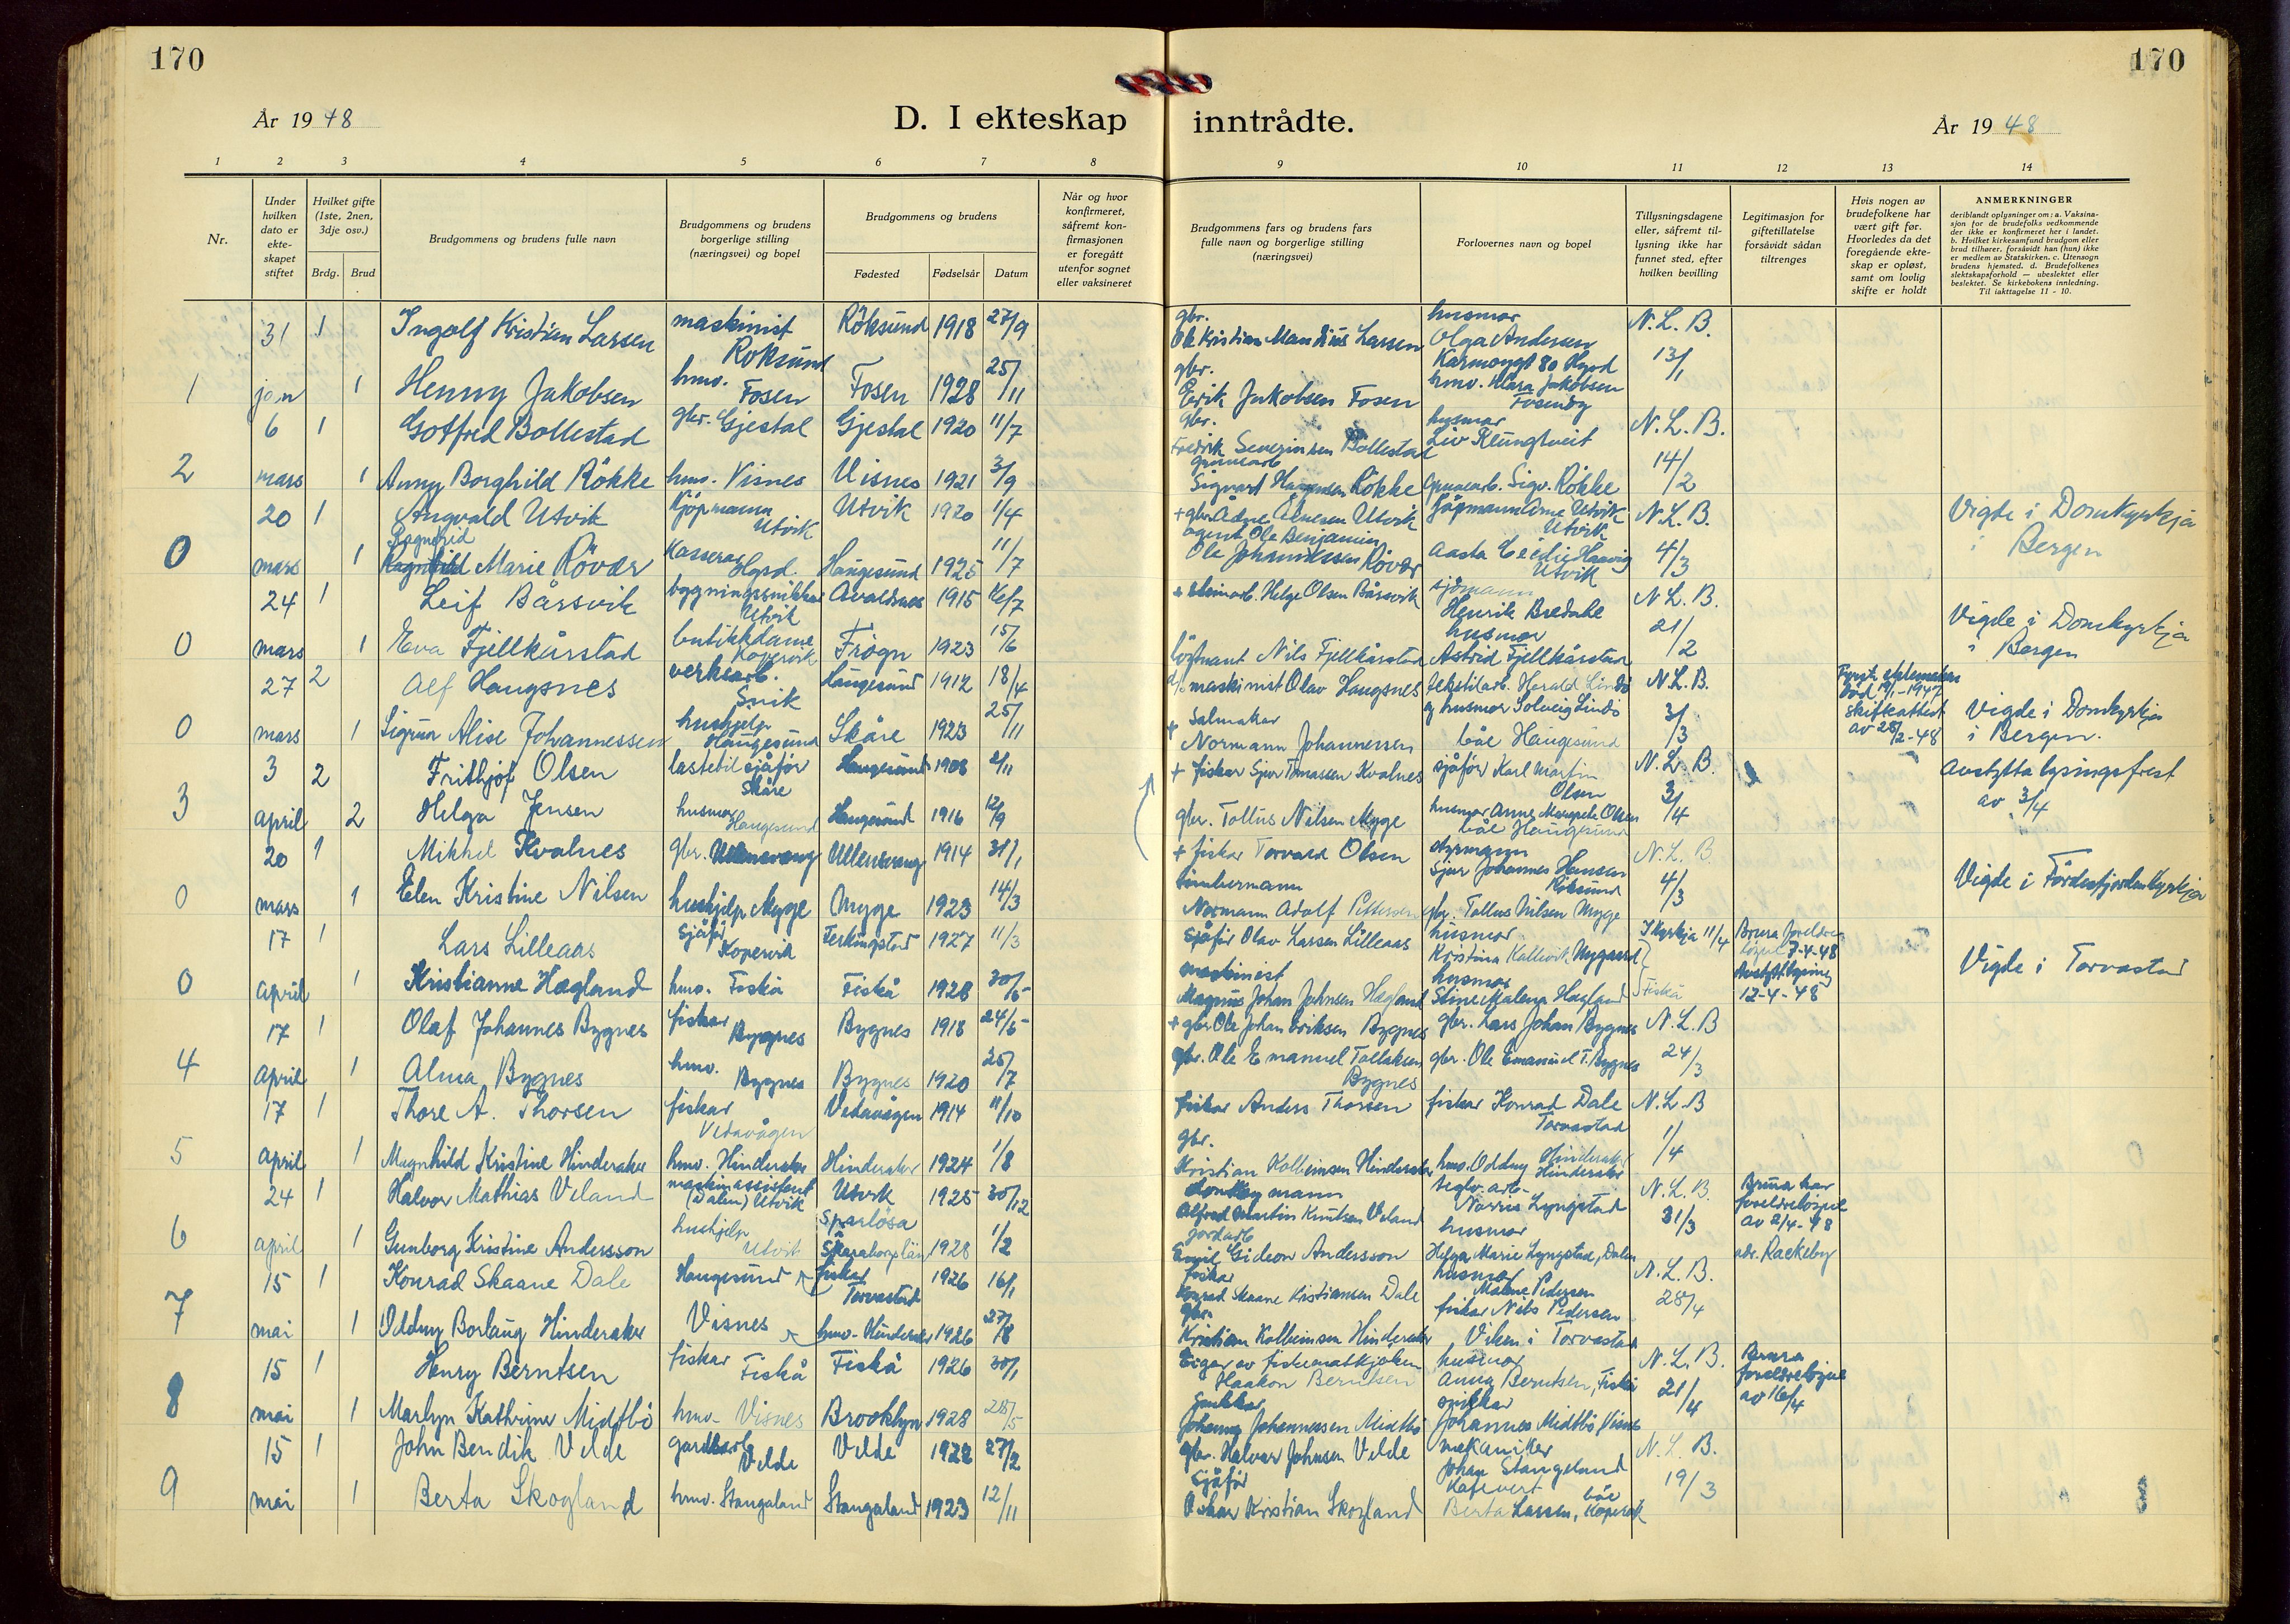 170
170
År 1948
D. I ekteskap inntrådte.
År 1948
1 2 3 4 5 6 7 8 9 10 11 12 13 14
Nr.
Under hvilken dato er ekte-skapet stiftet
Hvilket gifte (1ste, 2nen, 3dje osv.)
Brdg. Brud
Brudgommens og brudens fulle navn
Brudgommens og brudens borgerlige stilling (næringsvei) og bopel
Brudgommens og brudens
Fødested Fødselsår Datum
Når og hvor konfirmeret, såfremt kon-firmasjonen er foregått utenfor sognet eller vaksineret
Brudgommens fars og brudens fars fulle navn og borgerlige stilling (næringsvei)
Forlovernes navn og bopel
Tillysningsdagene eller, såfremt til-lysning ikke har funnet sted, efter hvilken bevilling
Legitimasjon for giftetillatelse forsåvidt sådan tiltrenges
Hvis nogen av brudefolkene har vært gift før. Hvorledes da det foregående ekte-skap er opløst, samt om lovlig skifte er holdt
ANMERKNINGER
deriblandt oplysninger om: a. Vaksina-sjon for de brudefolks vedkommende der ikke er konfirmeret her i landet. b. Hvilket kirkesamfund brudgom eller brud tilhører, forsåvidt han (hun) ikke er medlem av Statskirken. c. Utensogn brudens hjemsted. d. Brudefolkenes slektskapsforhold — ubeslektet eller beslektet. Se kirkebokens innledning. Til iakttagelse 11 - 10.
31 1 Ingolf Kristian Larsen maskinist Røksund Røksund 1918 27/9 gbr. Ole Kristian Mandius Larsen husmor Olga Andersen Karmøygt 80 Hgsd N.L.B.
1 jan 1 Henny Jakobsen hmv. Fosen Fosen 1928 25/11 gbr. Eirik Jakobsen Fosen hmv. Klara Jakobsen Fosenøy 13/1
6 1 Gotfred Bollestad gbr. Gjestal Gjestal 1920 11/7 gbr. Fredrik Severinsen Bollestad husmor Liv Klungtveit N.L.B.
2 mars 1 Anny Borghild Rökke hmv. Visnes Visnes 1921 3/9 gruvearb. Sigvart Rökke gruvearb. Sigv. Rökke 14/2
20 1 Angvald Utvik Kjøpmann Utvik Utvik 1920 1/4 + gbr. Ådne Utvik Kjøpmann Arne Utvik Utvik N.L.B. Vigde i Domkyrkja i Bergen
0 mars 1 Ragnfrid Marie Rövær Kasserar Hgsd. Haugesund 1925 11/7 agent Ole Benjamin Ole Johannessen Rövær Aasta Haavig Utvik 4/3
24 1 Leif Bårsvik bygningssnikkar Utvik Avaldsnes 1915 16/7 + steinarb. Helge Olsen Bårsvik sjømann Henrik Bredahl N.L.B. Vigde i Domkyrkja i Bergen
0 mars 1 Eva Fjellkårstad butikkdame Kopervik Frogn 1923 15/6 løytnant Nils Fjellkårstad husmor Astrid Fjellkårstad 21/2
27 2 Alf Haugsnes verksarb. Snik Haugesund 1912 18/4 maskinist Olav Haugsnes tekstilarb. Harald Lindø N.L.B. død 1947 skifteattest av 28/2-48 Vigde i Domkyrkja i Bergen.
0 mars 1 Sigrun Alise Johannessen hushjelp Haugesund Skåre 1923 25/11 + Salmakar Normann Johannessen og husmor Solveig Lindø båe Haugesund 3/3
3 2 Frithjof Olsen lastebilsjåfør Skåre Haugesund 1908 2/11 + fiskar Sjur Tomassen Kvalnes sjåfør Karl Martin Olsen N.L.B. Avstytta lysingsfrest av 3/4
3 april 2 Helga Jensen husmor Haugesund Haugesund 1916 12/9 gbr. Tollus Nilsen Myge husmor Anne Margrete Olsen båe Haugesund 3/4
20 1 Mikkel Kvalnes gbr. Ullensvang Ullensvang 1914 31/1 + fiskar Torvald Olsen styrmann Sjur Johannes Hansen Røksund N.L.B. Vigde i Førdesfjorden Kyrkja
0 mars 1 Elen Kristine Nilsen hushjelp Myge Myge 1923 14/3 tømbermann Normann Adolf Pettersen gbr. Tollus Nilsen Myge 4/3
17 1 Lars Lilleaas Sjåfør Kopervik Ferkingstad 1927 11/3 Sjåfør Olav Larsen Lilleaas husmor Kristina Kallevik Nygaard I Kyrkja 11/4 Brura foreldreløyve 7-4-48 Vigde i Torvastad
0 april 1 Kristianne Hagland hmv. Fiskå Fiskå 1928 30/5 maskinist Magnus Johan Johnsen Hagland husmor Stine Malena Hagland Fiskå Avstytt lysing 12-4-48
17 1 Olaf Johannes Bygnes fiskar Bygnes Bygnes 1918 24/5 + gbr. Ole Johan Eriksen Bygnes gbr. Lars Johan Bygnes N.L.B
4 april 1 Alma Bygnes hmv. Bygnes Bygnes 1920 25/7 gbr. Ole Emanuel Tollaksen Bygnes gbr. Ole Emanuel T. Bygnes 24/3
17 1 Thore A. Thorsen fiskar Vedavågen Vedavågen 1914 11/10 fiskar Anders Thorsen fiskar Konrad Dale Torvastad N.L.B
5 april 1 Magnhild Kristine Hinderaker hmv. Hinderaker Hinderaker 1924 1/8 gbr. Kristian Kolbeinsen Hinderaker hmv. Oddny Hinderaker Hinderaker 1/4
24 1 Halvor Mathias Veland maskinassistent (Dalen) Utvik Utvik 1925 30/12 donkeymann Alfred Martin Knutsen Veland teglv. arb. Norris Lyngstad N.L.B. Bruna har foreldreløyve av 2/4-48
6 april 1 Gunborg Kristine Andersson hushjelp Utvik Sparlösa Skaraborgs län 1928 1/2 jordarb Emil Gideon Andersson husmor Helga Marie Lyngstad, Dalen 31/3 adr. Rackeby
15 1 Konrad Skaane Dale Haugesund fiskar Torvastad 1926 16/1 fiskar Konrad Skaane Kristiansen Dale husmor Malene Pedersen N.L.B.
7 mai 1 Oddny Borlaug Hinderaker Visnes hmv. Hinderaker 1926 27/8 gbr. Kristian Kolbeinsen Hinderaker fiskar Nils Pedersen Viken i Torvastad 28/4
15 1 Henry Berntsen fiskar Fiskå Fiskå 1926 30/1 Eigar av fiskematkjøken Haakon Berntsen husmor Anna Berntsen, Fiskå N.L.B. Brura foreldreløyve av 16/4
8 mai 1 Marlyn Kathrine Midtbö hmv. Visnes Brooklyn 1928 28/5 Snikkar Johannes Johannessen Midtbö snikkar Johannes Midtbö, Visnes 21/4
15 1 John Bendik Velde gardbarb Velde Velde 1922 27/2 gbr. Halvor Johnsen Velde mekaniker Johan Stangeland N.L.B.
9 mai 1 Berta Skogland hmv. Stangaland Stangaland 1923 12/11 Sjåfør Oskar Kristian Skogland Kafévert Berta Larsen, båe Kopervik 19/3